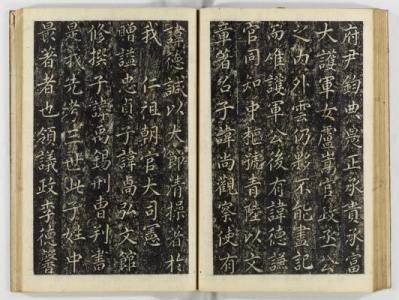 府尹鈞典農正永貴永富
大護軍女盧嵩官政丞公
之內外雲仍夥不能盡記
焉維護軍公後有諱德謙
官同知中樞號青陸以文
章著名子諱尚觀察使有
諱德諴以大節清操著於
我 仁祖朝官大司憲
贈諡忠貞子諱卨弘文館
修撰子諱禹錫刑曹判書
是我先考三世此子姓中
最著者也領議政李德馨